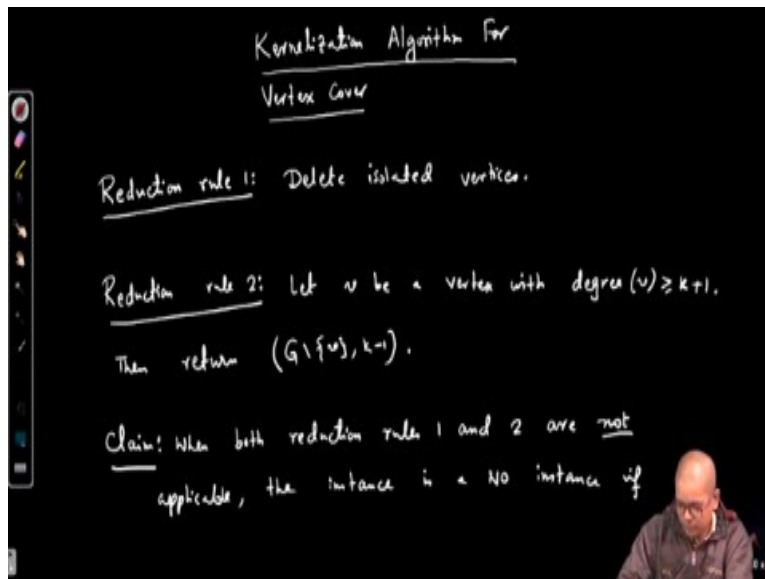 Kernelization Algorithm For
Vertex Cover
Reduction rule 1: Delete isolated vertices.
Reduction rule 2: Let v be a vertex with degree (v) ≥ k+1.
Then return (G \ {v}, k-1).
Claim: When both reduction rules 1 and 2 are not
applicable, the instance is a NO instance if